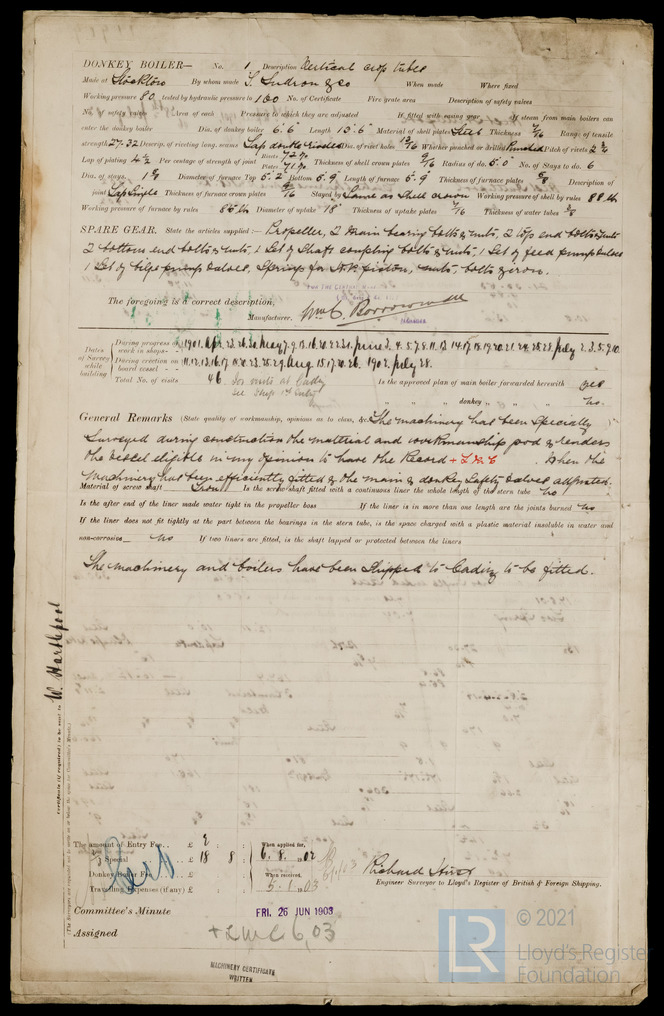 DONKEY BOILER— No. 1 Description Vertical cross tubes
Made at Stockton By whom made T. Sudron & Co When made Where fixed
Working pressure 80 tested by hydraulic pressure to 160 No. of Certificate Fire grate area Description of safety valves
No. of safety valves Area of each Pressure to which they are adjusted If fitted with easing gear If steam from main boilers can
enter the donkey boiler Dia. of donkey boiler 6.6" Length 13.6" Material of shell plates Steel Thickness 7/16 Range of tensile
strength 27.32 Descrip. of riveting long. seams Lap double riveted Dia. of rivet holes 13/16 Whether punched or drilled Punched Pitch of rivets 2 3/4
Lap of plating 4 1/2 Per centage of strength of joint Rivets 72% Plates 71% Thickness of shell crown plates 9/16 Radius of do. 5.0" No. of Stays to do. 6
Dia. of stays. Diameter of furnace Top 5.2" Bottom 5.9" Length of furnace 5.9" Thickness of furnace plates Description of
joint Lap Single Thickness of furnace crown plates 9/16 Stayed by Same as Shell crown Working pressure of shell by rules 88 lb
Working pressure of furnace by rules 85 lb Diameter of uptake 18" Thickness of uptake plates 7/16 Thickness of water tubes 3/8
SPARE GEAR. State the articles supplied:— Propeller, 2 main bearing bolts & nuts, 2 top end bolts & nuts
2 bottom end bolts & nuts, 1 Set of Shaft coupling bolts & nuts, 1 Set of feed pump valves
1 Set of bilge pump valves, Springs for H.P. piston, nuts, bolts & iron.
The foregoing is a correct description,
Wm C. Borrowman
Manufacturer.
Dates of Survey while building
During progress of work in shops - -
During erection on board vessel - - -
Total No. of visits 46
1902 July 28.
Is the approved plan of main boiler forwarded herewith yes
" " " donkey " " " no.
General Remarks (State quality of workmanship, opinions as to class, &c. The machinery has been specially
surveyed during construction the material and workmanship good & renders
the vessel eligible in my opinion to have the Record + LMC. When the
machinery has been efficiently fitted & the main & donkey Safety valves adjusted.
Material of screw shaft Iron Is the screw shaft fitted with a continuous liner the whole length of the stern tube no
Is the after end of the liner made water tight in the propeller boss If the liner is in more than one length are the joints burned no
If the liner does not fit tightly at the part between the bearings in the stern tube, is the space charged with a plastic material insoluble in water and
non-corrosive— no If two liners are fitted, is the shaft lapped or protected between the liners
The machinery and boilers have been shipped to Cadiz to be fitted.
W. Hartlepool
Certificate (if required) to be sent to
The amount of Entry Fee . . £ 2 : :
2/3 Special . . £ 18 : 8 :
Donkey Boiler Fee . . £ : :
Travelling Expenses (if any) £ : :
When applied for,
6. 8. 02
When received,
5. 1. 03
Engineer Surveyor to Lloyd's Register of British & Foreign Shipping.
Committee's Minute FRI. 26 JUN 1903
Assigned + LMC 6,03
MACHINERY CERTIFICATE
WRITTEN
LR
© 2021
Lloyd's Register
Foundation